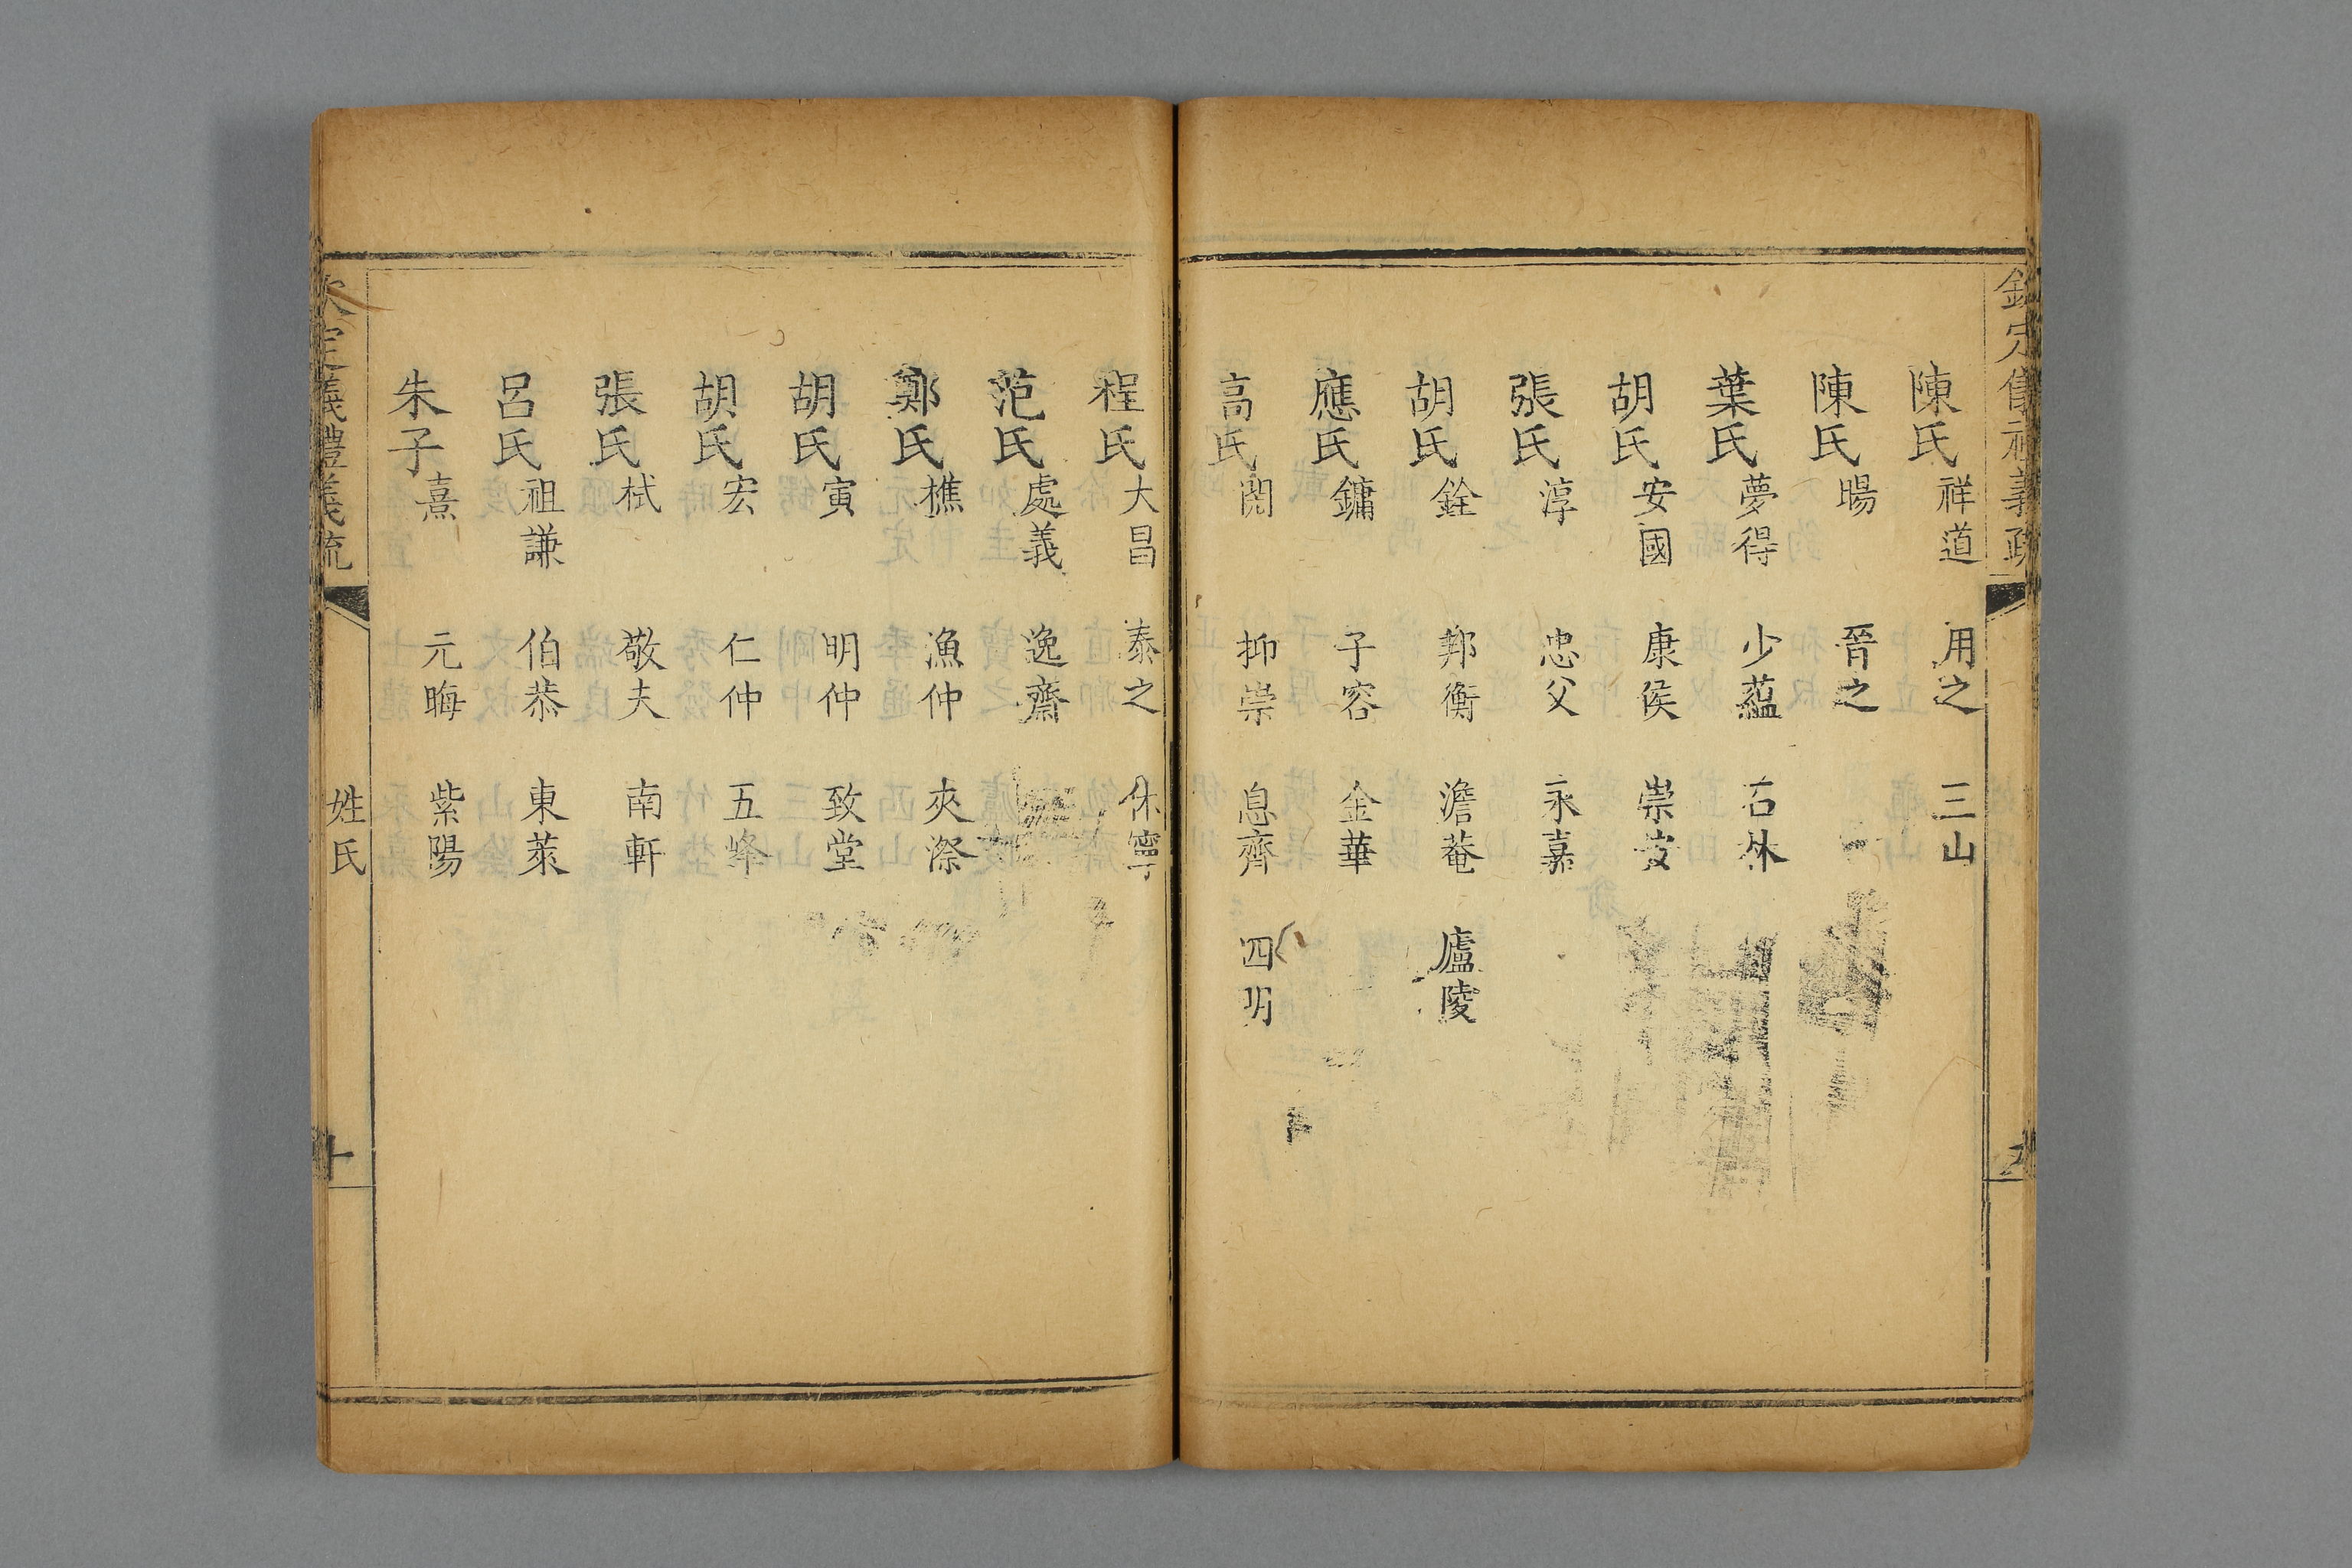 陳氏祥道 用之 三山
陳氏暘 晉之
葉氏夢得 少蘊 石林
胡氏安國 康侯 崇安
張氏淳 忠父 永嘉
胡氏銓 邦衡 澹菴 廬陵
應氏鏞 子容 金華
高氏閌 抑崇 息齊 四明
程氏大昌 泰之 休寧
范氏處義 逸齋
鄭氏樵 漁仲 夾漈
胡氏寅 明仲 致堂
胡氏宏 仁仲 五峰
張氏栻 敬夫 南軒
呂氏祖謙 伯恭 東萊
朱子熹 元晦 紫陽
欽定義禮義疏 姓氏 十